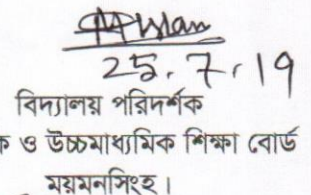 25.7.19
বিদ্যালয় পরিদর্শক
ক ও উচ্চমাধ্যমিক শিক্ষা বোর্ড
ময়মনসিংহ।